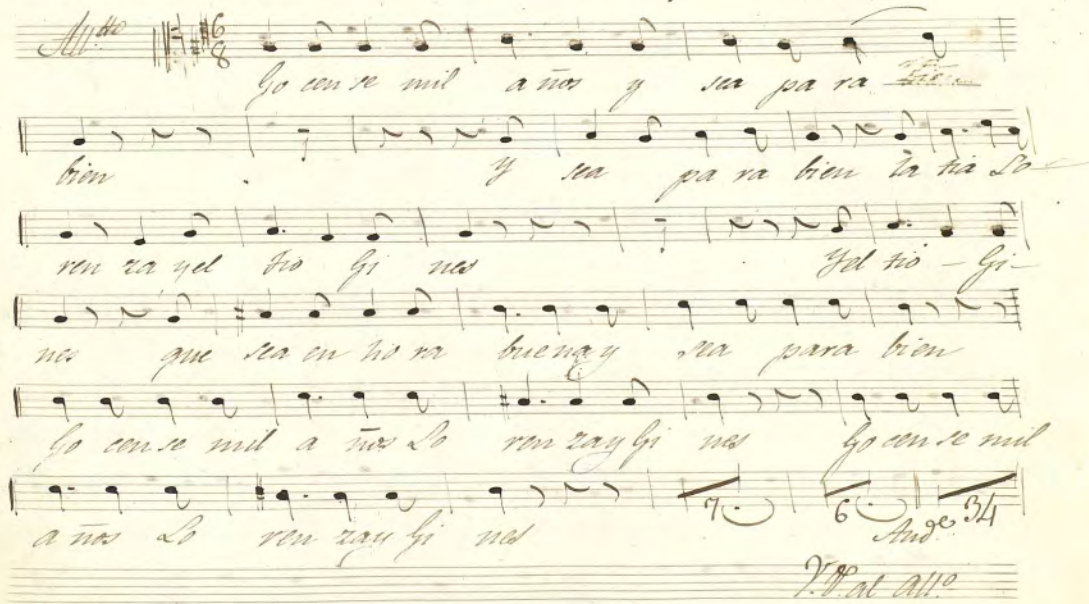 All.tto 6 8
Go cen se mil a ños y sea pa ra
bien y sea pa ra bien la tia Lo-
ren za y el tio Gi nes Y el tio - Gi-
nes que sea en ho ra buena y sea para bien
Go cen se mil a ños Lo ren za y Gi nes Go cen se mil
a ños Lo ren za y Gi nes 7 6 And.e 34
V.S. al All.o